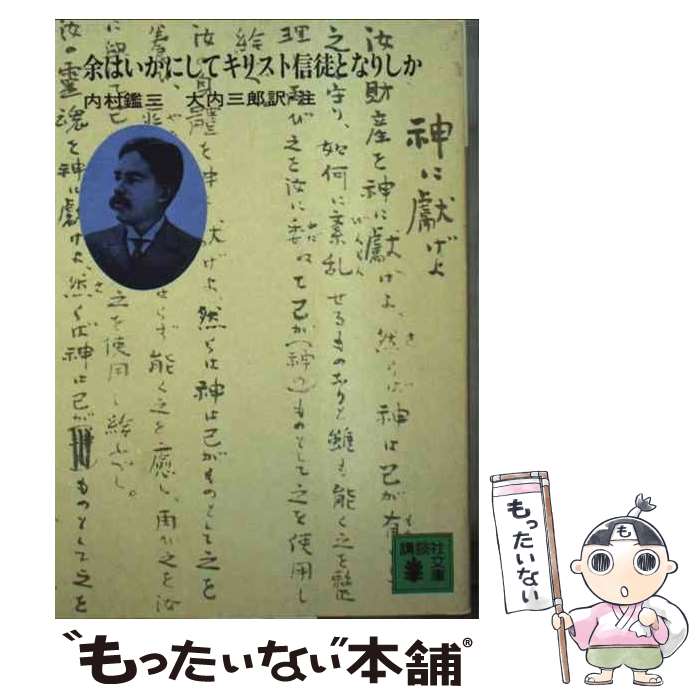 余はいかにしてキリスト信徒となりしか
内村鑑三 大内三郎訳・注
神に獻げよ
汝の財産を神に獻げよ、然らば神は己が有
之を守り、如何に紊乱せるものありと雖も能く之を整
理し再び之を汝に委ねて己が(神の)ものとして之を使用し
給
汝の身體を神に獻げよ、然らば神は己がものとして之を
らず能く之を癒し、再び之を汝
之を使用し給ふべし。
汝の靈魂を神に獻げよ、然らば神は己が ものとして之を
講談社
文庫
もったいない
も
"もったいない本舗®